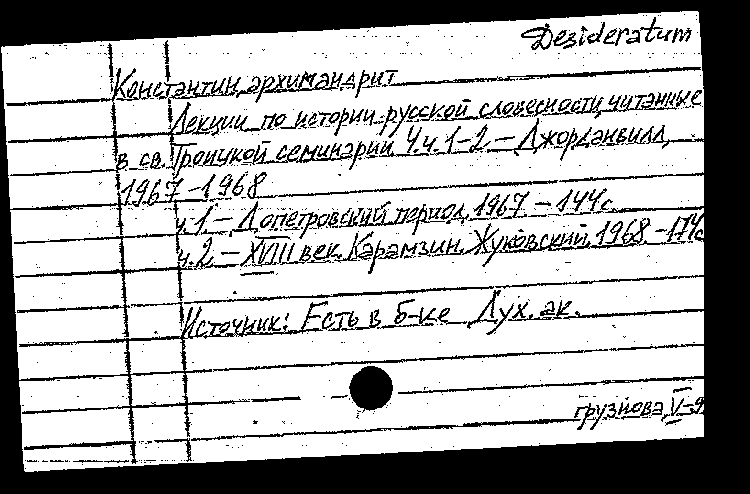 Desideratum
Константин, архимандрит
Лекции по истории русской словесности, читанные
в св. Троицкой семинарии. Ч.ч. 1-2. – Джорданвилл,
1967-1968
ч. 1 – Допетровский период, 1967 – 144с.
ч. 2. – XVIII век. Карамзин. Жуковский, 1968 – 174с
Источник: Есть в б-ке Дух. ак.
грузнова, V-9